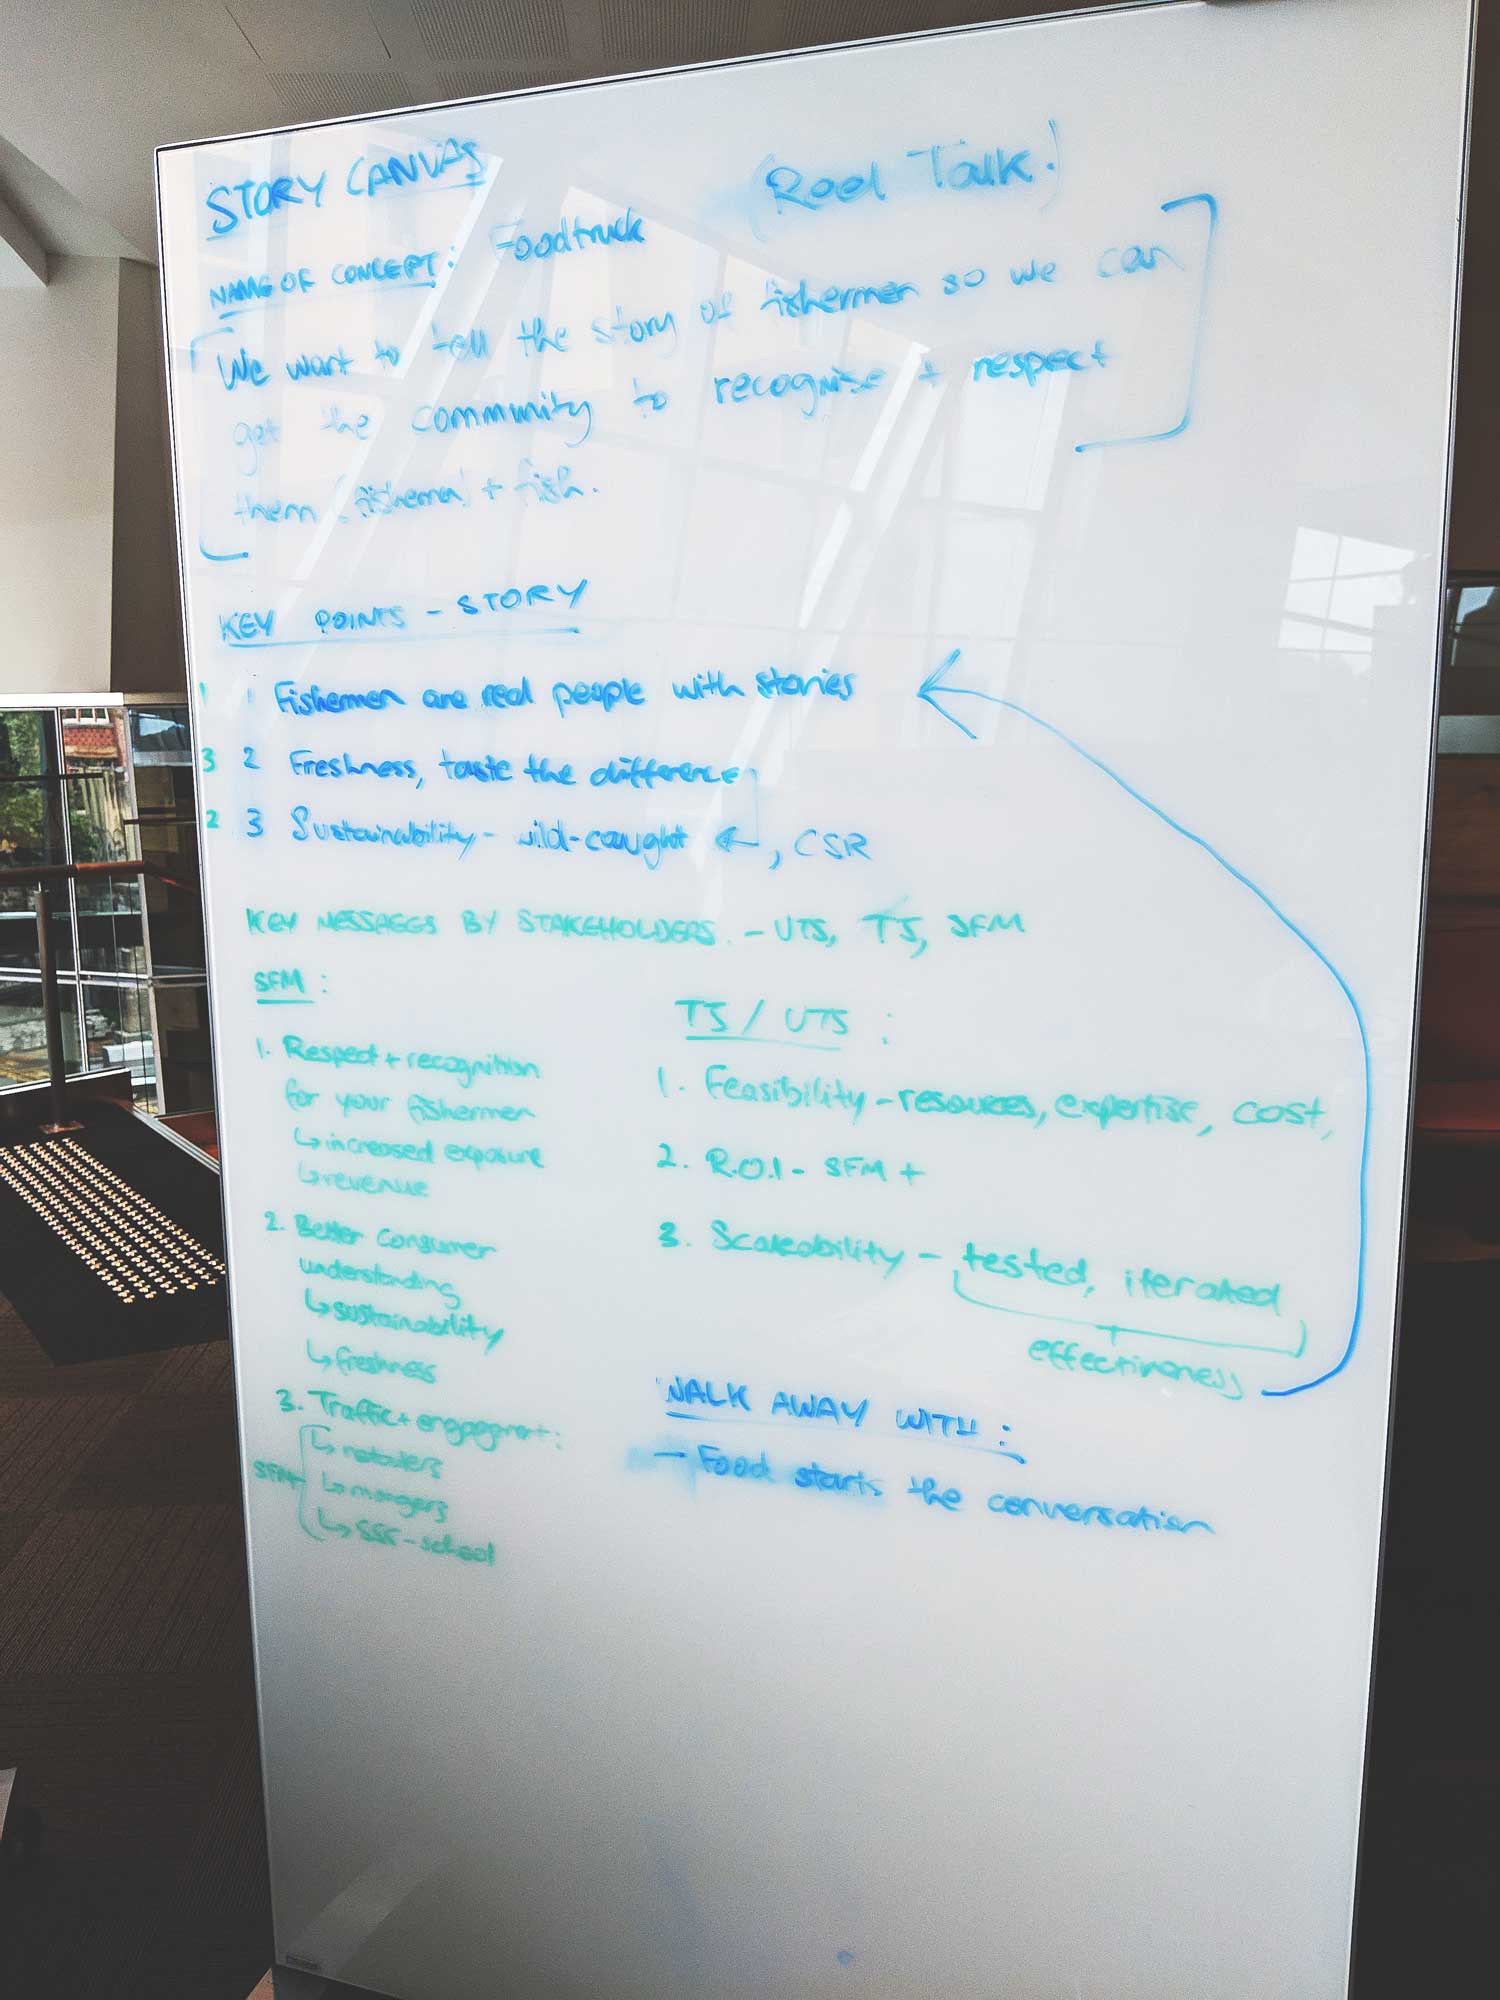 STORY CANVAS
(Reel Talk.)
NAME OF CONCEPT: Foodtruck
We want to tell the story of fishermen so we can
get the community to recognise + respect
them (fishermen) + fish.
KEY POINTS - STORY
1 1 Fishermen are real people with stories
3 2 Freshness, taste the difference
2 3 Sustainability - wild-caught ←, CSR
KEY MESSAGES BY STAKEHOLDERS. - UTS, TJ, SFM
SFM:
1. Respect + recognition
for your fishermen
↳ increased exposure
↳ revenue
2. Better consumer
understanding
↳ sustainability
↳ freshness
3. Traffic + engagement:
↳ retailers
SFM ↳ mongers
↳ SSF - school
TJ / UTS :
1. Feasibility - resources, expertise, cost,
2. R.O.I - SFM +
3. Scaleability - tested, iterated
effectiveness
WALK AWAY WITH :
- Food starts the conversation